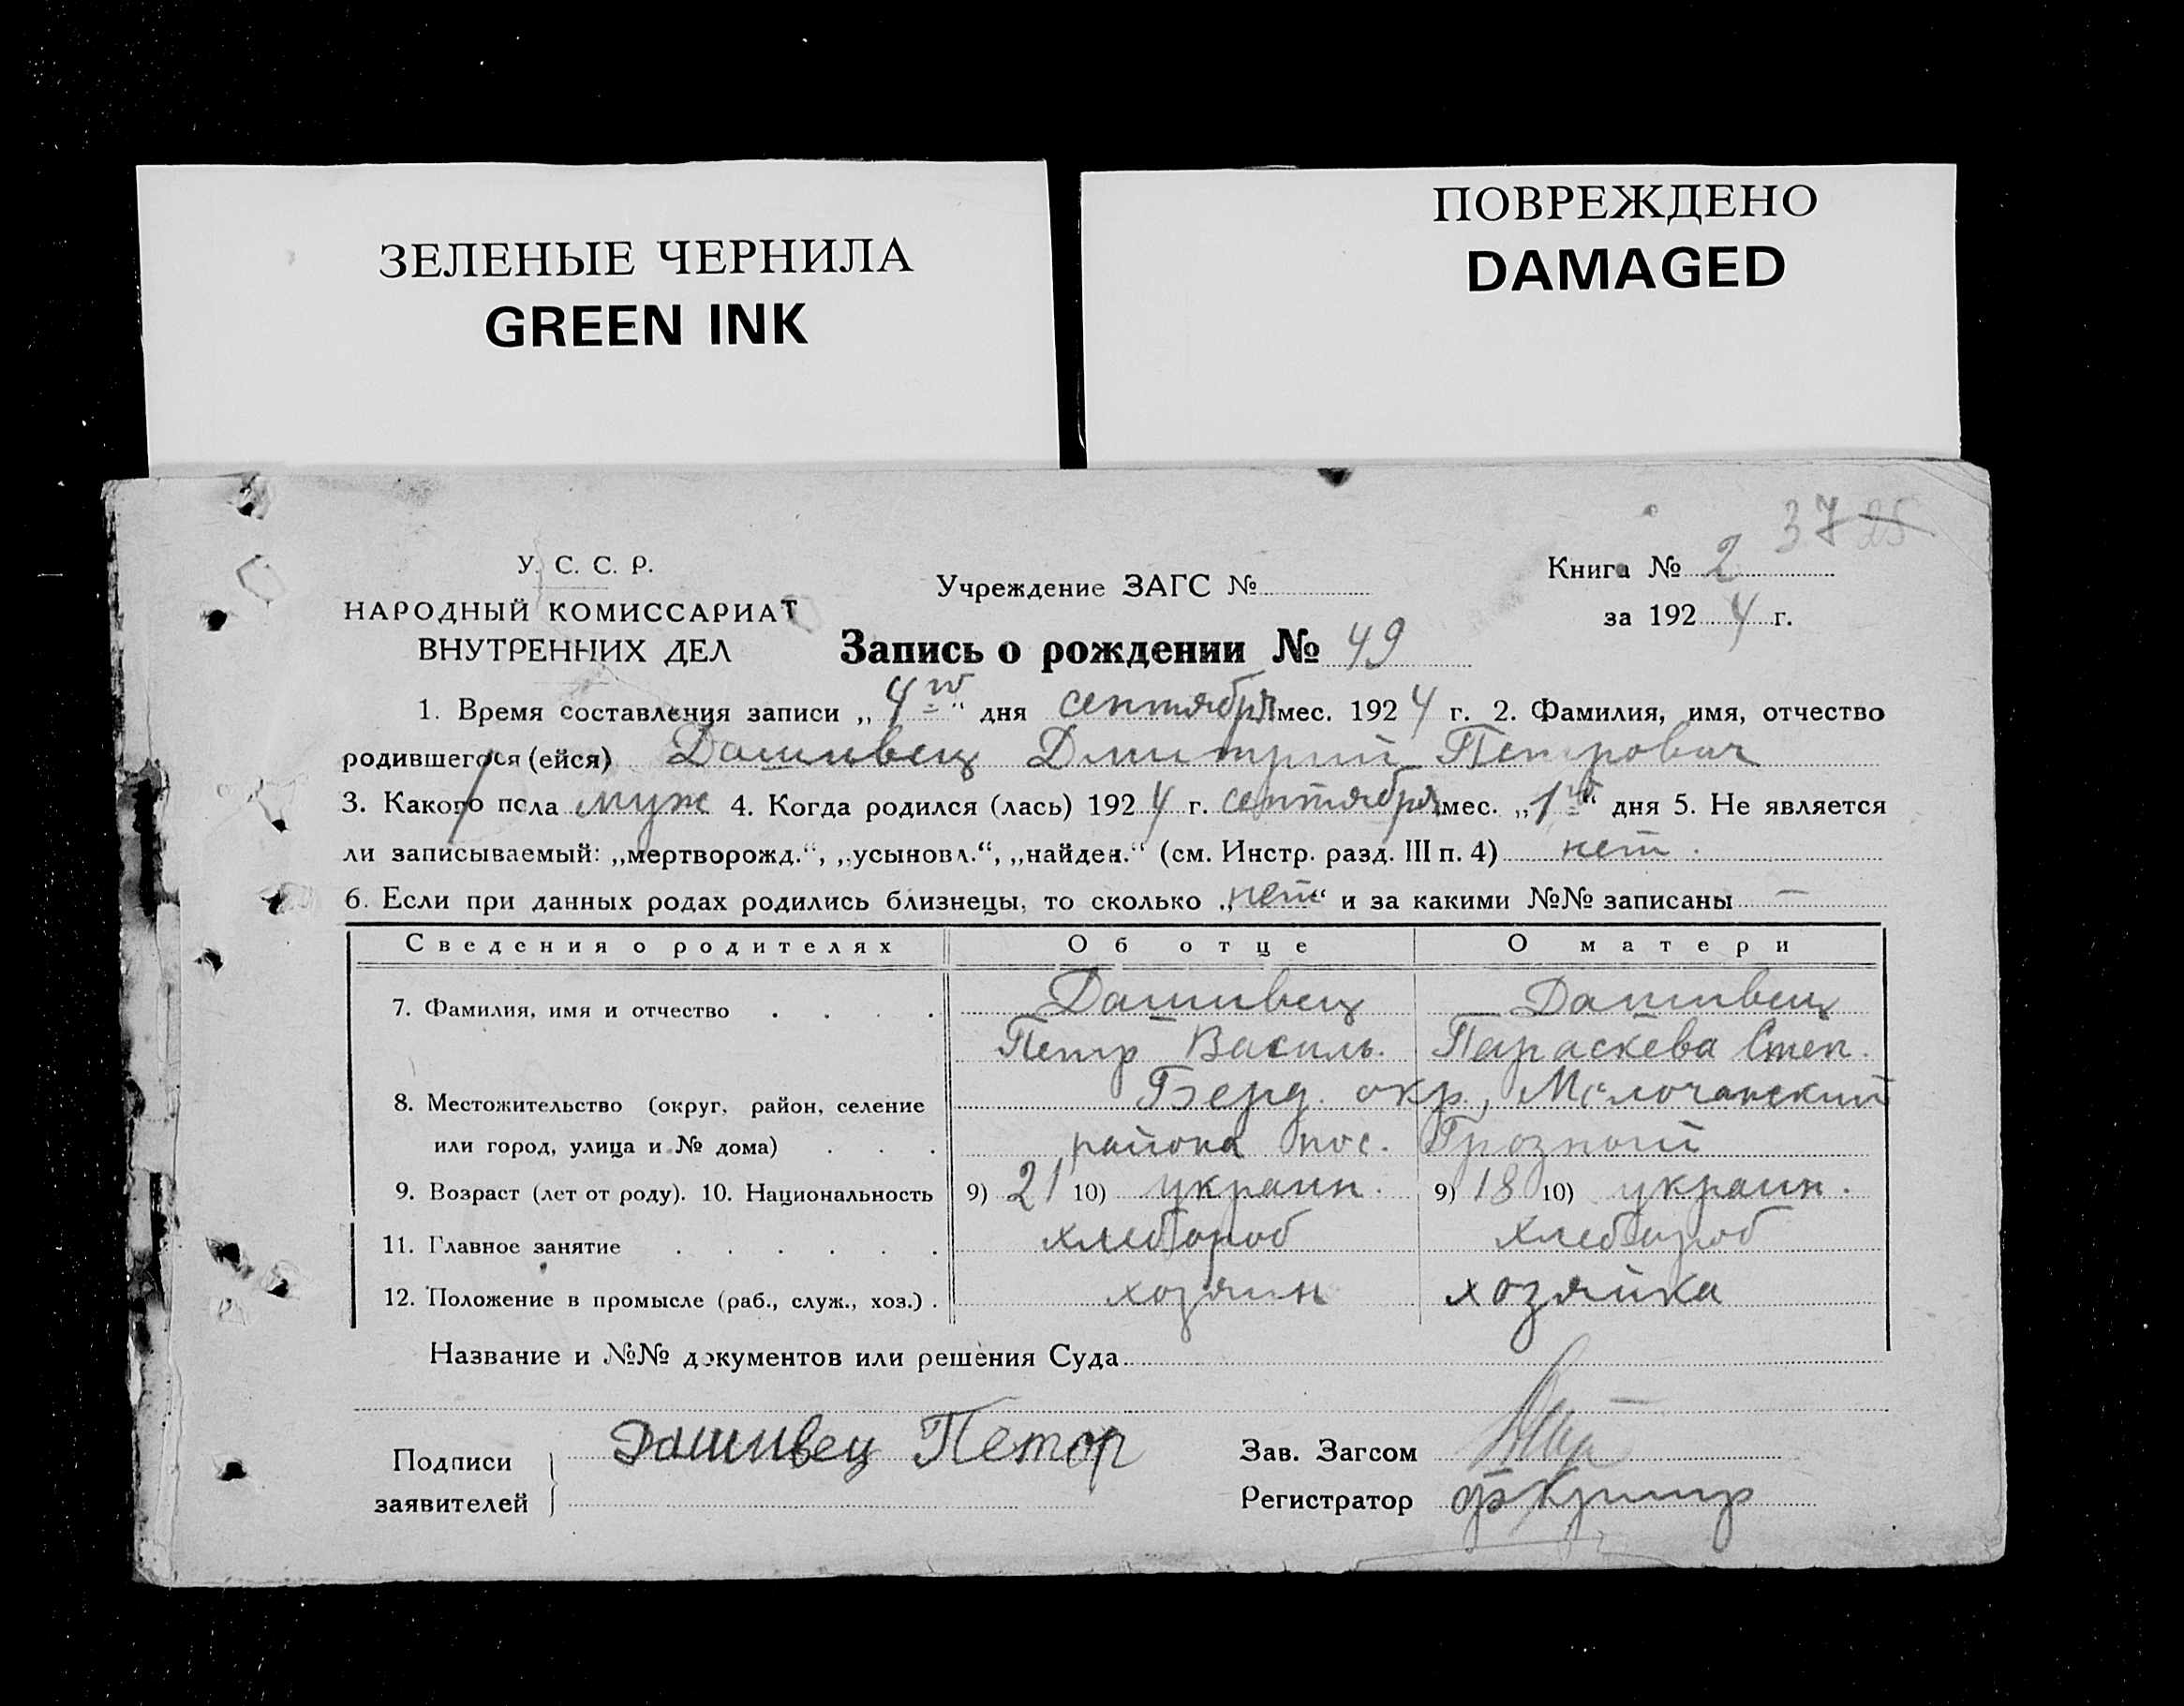 ЗЕЛЕНЫЕ ЧЕРНИЛА
GREEN INK
ПОВРЕЖДЕНО
DAMAGED
37 25
У. С. С. Р.
НАРОДНЫЙ КОМИССАРИАТ
ВНУТРЕННИХ ДЕЛ
Учреждение ЗАГС №
Книга № 2
за 1924 г.
Запись о рождении № 49
1. Время составления записи „4го“ дня сентября мес. 1924 г. 2. Фамилия, имя, отчество
родившегося (ейся) Дашивец Дмитрий Петрович
3. Какого пола муж 4. Когда родился (лась) 1924 г. сентября мес. „1го“ дня 5. Не является
ли записываемый: „мертворожд.“, „усыновл.“, „найден.“ (см. Инстр. разд. III п. 4) нет.
6. Если при данных родах родились близнецы, то сколько „нет“ и за какими №№ записаны —
Сведения о родителях Об отце О матери
7. Фамилия, имя и отчество . . . . Дашивец Дашивец
Петр Василь. Параскева Степ.
8. Местожительство (округ, район, селение Берд. окр., Молочанский
или город, улица и № дома) . . . района пос. Грозный
9. Возраст (лет от роду). 10. Национальность 9) 21 10) украин. 9) 18 10) украин.
11. Главное занятие . . . . . . хлебороб хлебороб
12. Положение в промысле (раб., служ., хоз.) . хозяин хозяйка
Название и №№ документов или решения Суда
Подписи заявителей Дашивец Петор
Зав. Загсом
Регистратор